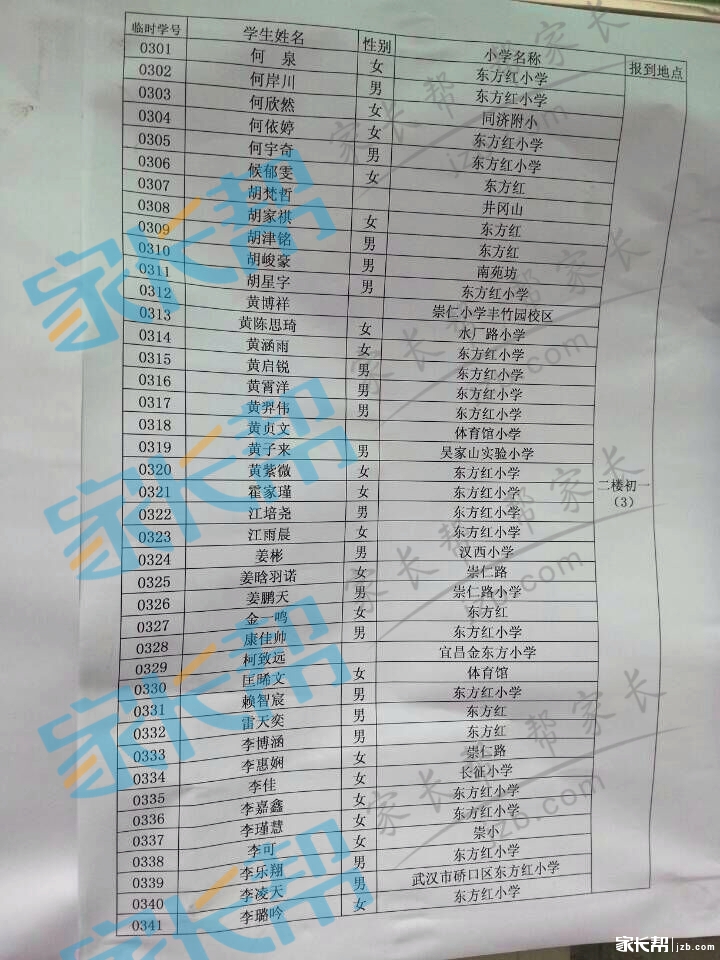 临时学号 学生姓名 性别 小学名称 报到地点
0301 何泉 女 东方红小学
0302 何岸川 男 东方红小学
0303 何欣然 女 同济附小
0304 何依婷 女 东方红小学
0305 何宇奇 男 东方红小学
0306 候郁雯 女 东方红
0307 胡梵哲 井冈山
0308 胡家祺 女 东方红
0309 胡津铭 男 东方红
0310 胡峻豪 男 南苑坊
0311 胡星字 男 东方红小学
0312 黄博祥 崇仁小学丰竹园校区
0313 黄陈思琦 女 水厂路小学
0314 黄涵雨 女 东方红小学
0315 黄启锐 男 东方红小学
0316 黄霄洋 男 东方红小学
0317 黄羿伟 男 东方红小学
0318 黄贞文 体育馆小学
0319 黄子来 男 吴家山实验小学
0320 黄紫微 女 东方红小学
0321 霍家瑾 女 东方红小学
二楼初一
（3）
0322 江培尧 男 东方红小学
0323 江雨晨 女 东方红小学
0324 姜彬 男 汉西小学
0325 姜晗羽诺 女 崇仁路
0326 姜鹏天 男 崇仁路小学
0327 金一鸣 女 东方红
0328 康佳帅 男 东方红小学
0329 柯致远 宜昌金东方小学
0330 匡晞文 女 体育馆
0331 赖智宸 男 东方红小学
0332 雷天奕 男 东方红
0333 李博涵 男 东方红
0334 李惠娴 女 崇仁路
0335 李佳 女 长征小学
0336 李嘉鑫 女 东方红小学
0337 李瑾慧 女 东方红小学
0338 李可 女 崇小
0339 李乐翔 男 东方红小学
0340 李凌天 男 武汉市硚口区东方红小学
0341 李璐吟 女 东方红小学
家长帮
家长帮
家长帮
家长帮 家长帮 家长
jzb.com
家长帮 家长帮 家长
jzb.com
家长帮 家长帮 家长
jzb.com
家长帮 家长帮 家长
jzb.com
家长帮 jzb.com